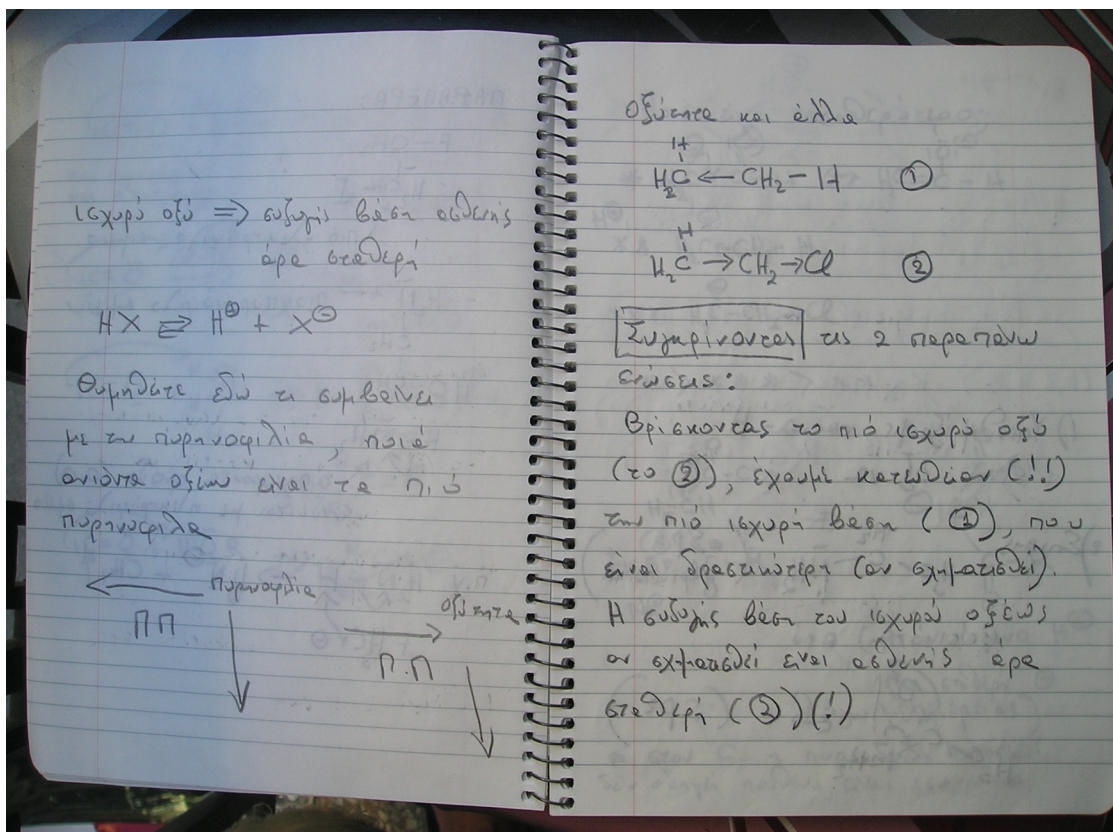 ισχυρό οξύ ⇒ συζυγής βάση ασθενής
άρα σταθερή
HX ⇌ H⊕ + X⊖
Θυμηθείτε εδώ τι συμβαίνει
με την πυρηνοφιλία, ποιά
ανιόντα οξέων είναι τα πιό
πυρηνόφιλα
← πυρηνοφιλία
ΠΠ ↓
οξύτητα
→
Π.Π ↓
Οξύτητα και άλλα
H
H₂C ← CH₂ – H ①
H
H₂C → CH₂ → Cl ②
Συγκρίνοντας τις 2 παραπάνω
ενώσεις:
Βρίσκοντας το πιό ισχυρό οξύ
(το ②), έχουμε κατευθείαν (!!)
την πιό ισχυρή βάση (①), που
είναι δραστικότερη (αν σχηματισθεί).
Η συζυγής βάση του ισχυρού οξέως
αν σχηματισθεί είναι ασθενής άρα
σταθερή (②)(!)